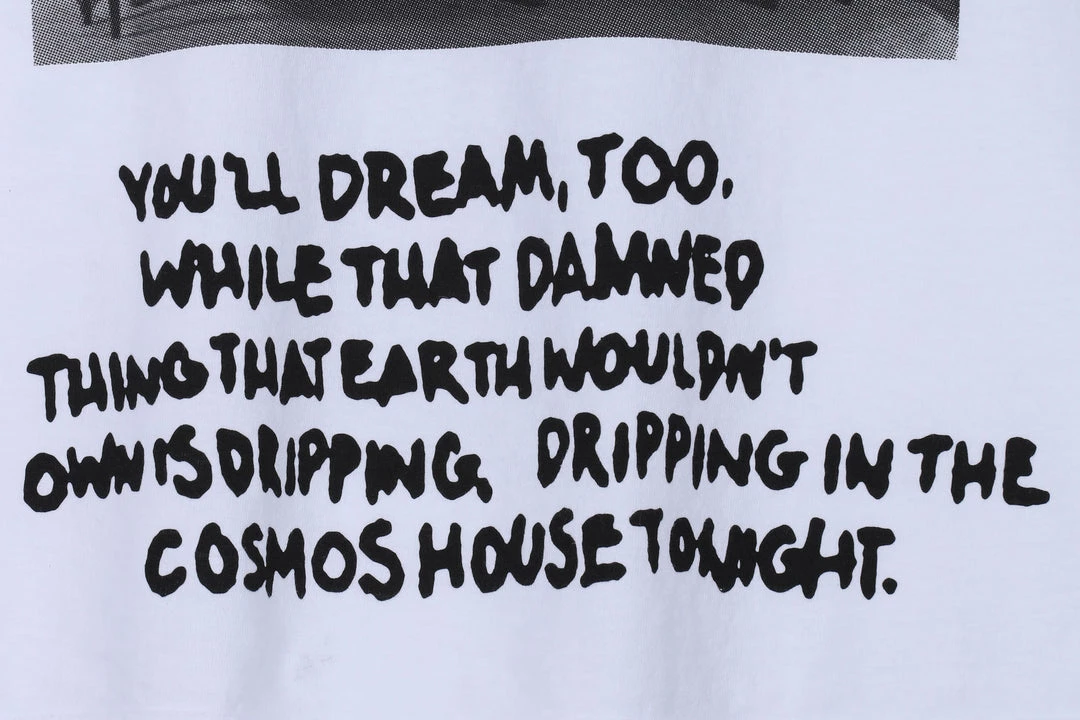 YOU'LL DREAM, TOO.
WHILE THAT DAMNED
THING THAT EARTH WOULDN'T
OWN IS DRIPPING, DRIPPING IN THE
COSMOS HOUSE TONIGHT.